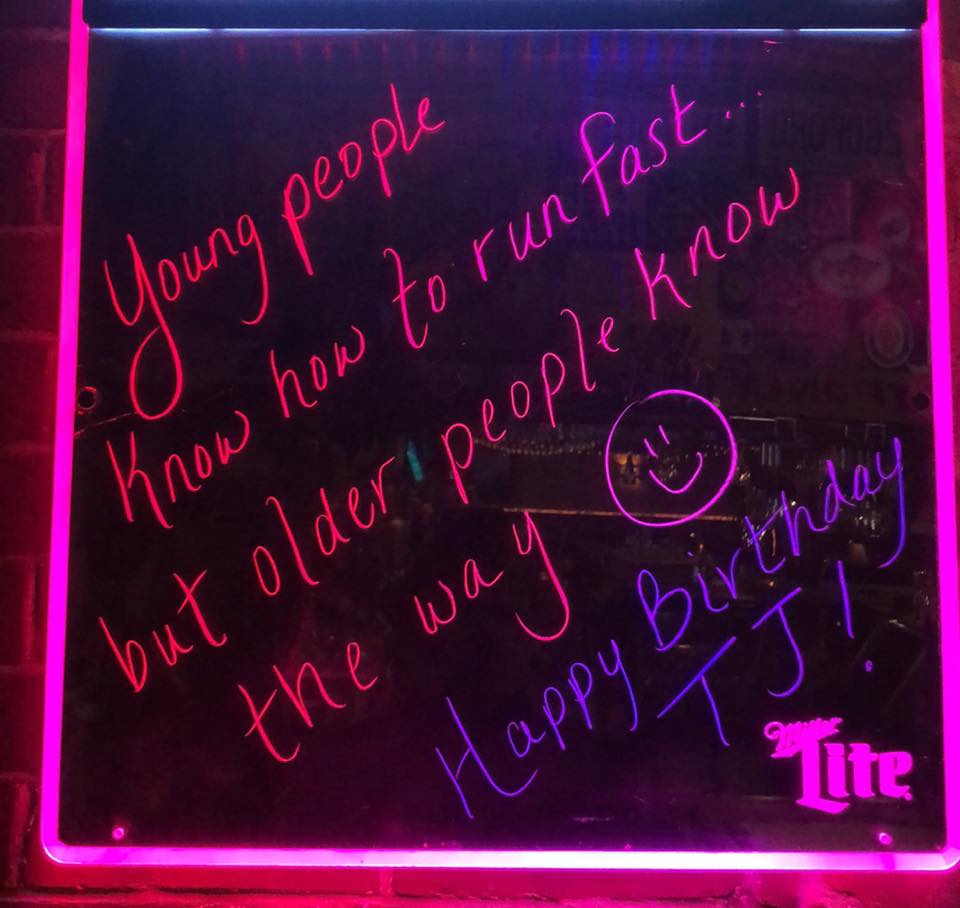 Young people
Know how to run fast...
but older people know
the way
Happy Birthday
TJ!
Miller
Lite